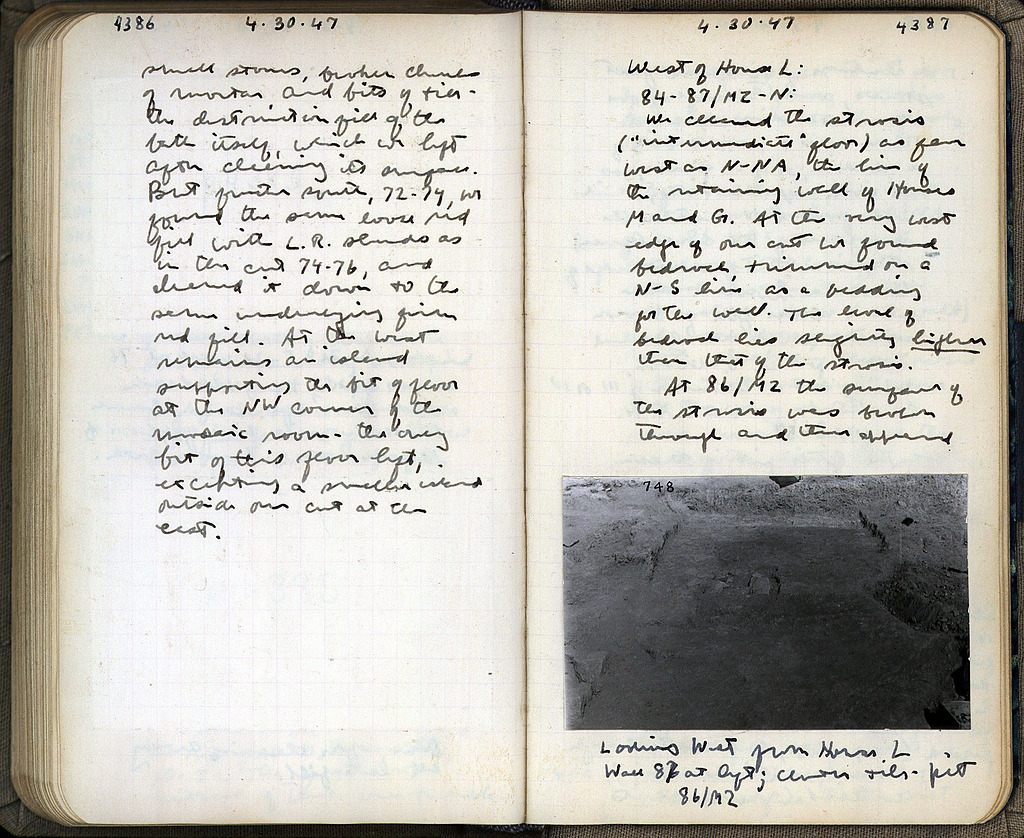 4386
4.30.47
small stones, broken chunks
of mortar and bits of tile -
the destruction fill of the
bath itself, which we left
after cleaning its surface.
But further south, 72-74, we
found the same loose red
fill with L.R. sherds as
in the cut 74-76, and
cleared it down to the
same underlying firm
red fill. At the west
remains an island
supporting the bit of floor
at the NW corner of the
mosaic room - the only
bit of this floor left,
excepting a smaller island
outside our cut at the
east.
4.30.47
4387
West of House L:
84-87/MZ-N:
We cleaned the strosis
("intermediate" floor) as far
west as N-NA, the line of
the retaining wall of Houses
M and G. At the very west
edge of our cut we found
bedrock, trimmed on a
N-S line as a bedding
for the wall. The level of
bedrock lies slightly higher
than that of the strosis.
At 86/MZ the surface of
the strosis was broken
through and there appeared
748
Looking West from House L
Wall 87 at left; center tile-pit
86/MZ